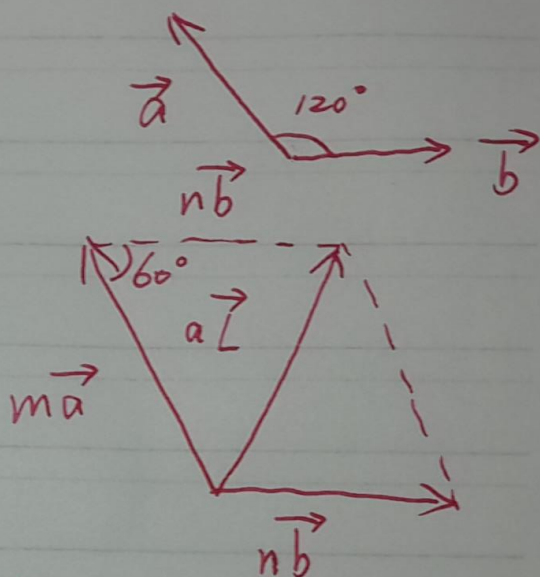 a⃗ 120°
b⃗
nb⃗
60°
a
ma⃗
nb⃗